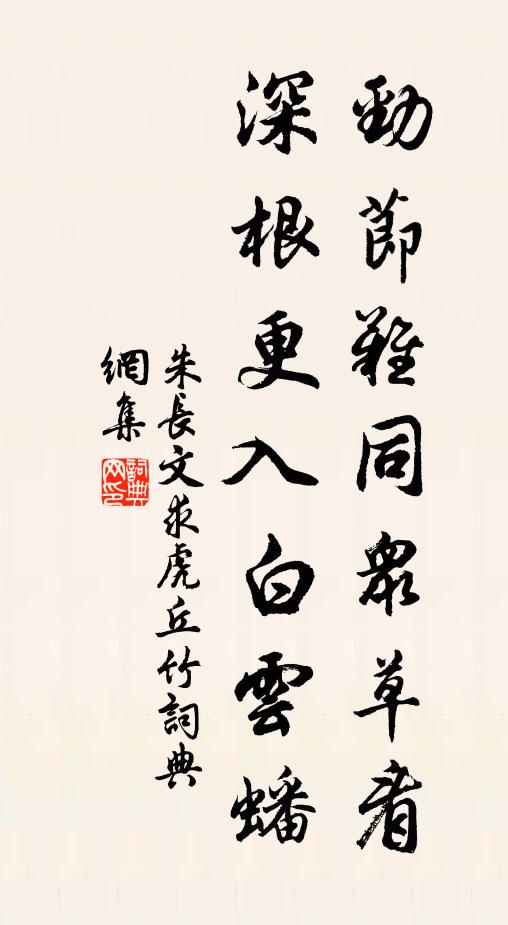 勁節難同眾草看
深根更入白雲蟠
朱長文求虎丘竹詞典
網集
詞典網印